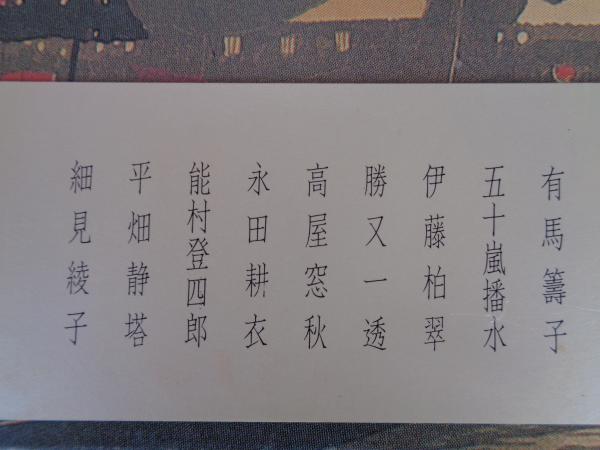 有馬籌子
五十嵐播水
伊藤柏翠
勝又一透
高屋窓秋
永田耕衣
能村登四郎
平畑静塔
細見綾子